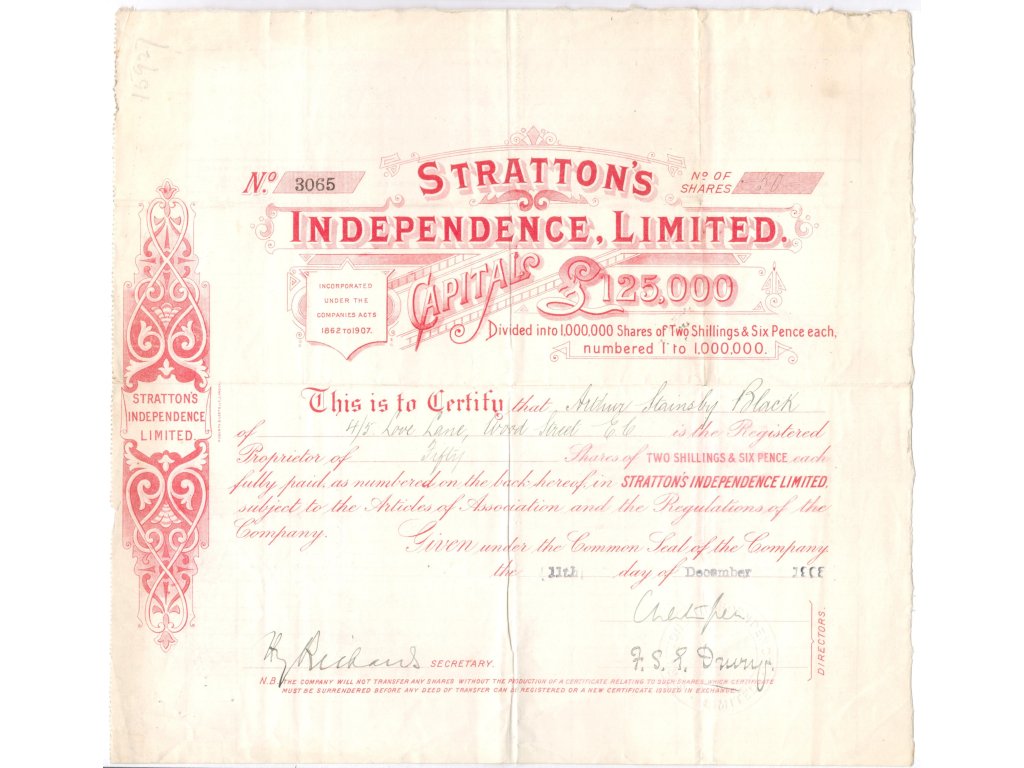 Nº 3065
STRATTON'S
Nº OF SHARES 50
INDEPENDENCE, LIMITED.
INCORPORATED
UNDER THE
COMPANIES ACTS
1862 TO 1907.
CAPITAL £125,000
Divided into 1,000,000 Shares of Two Shillings & Six Pence each,
numbered 1 to 1,000,000.
STRATTON'S
INDEPENDENCE
LIMITED.
This is to Certify that Arthur Stainsby Black
of 4/5 Love Lane, Wood Street E.C. is the Registered
Proprietor of Fifty Shares of TWO SHILLINGS & SIX PENCE each
fully paid, as numbered on the back hereof, in STRATTON'S INDEPENDENCE LIMITED,
subject to the Articles of Association and the Regulations of the
Company. Given under the Common Seal of the Company
the 11th day of December
DIRECTORS.
Hy Richards SECRETARY. F. S. Drury
N.B. THE COMPANY WILL NOT TRANSFER ANY SHARES WITHOUT THE PRODUCTION OF A CERTIFICATE RELATING TO SUCH SHARES, WHICH CERTIFICATE
MUST BE SURRENDERED BEFORE ANY DEED OF TRANSFER CAN BE REGISTERED OR A NEW CERTIFICATE ISSUED IN EXCHANGE.